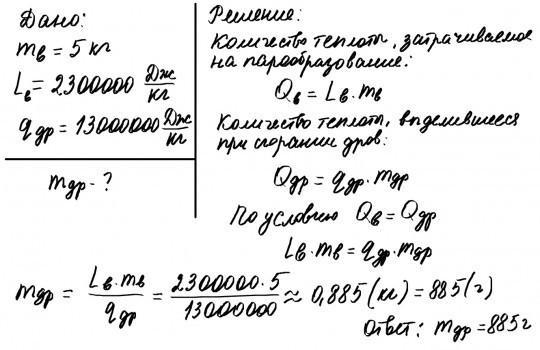 Дано:
mв = 5 кг
Lв = 2300000 Дж/кг
qдр = 13000000 Дж/кг
mдр - ?
Решение:
Количество теплоты, затрачиваемое
на парообразование:
Qв = Lв · mв
Количество теплоты, выделившееся
при сгорании дров:
Qдр = qдр · mдр
По условию Qв = Qдр
Lв · mв = qдр · mдр
mдр = Lв · mв / qдр = 2300000 · 5 / 13000000 ≈ 0,885 (кг) = 885 (г)
Ответ: mдр = 885 г